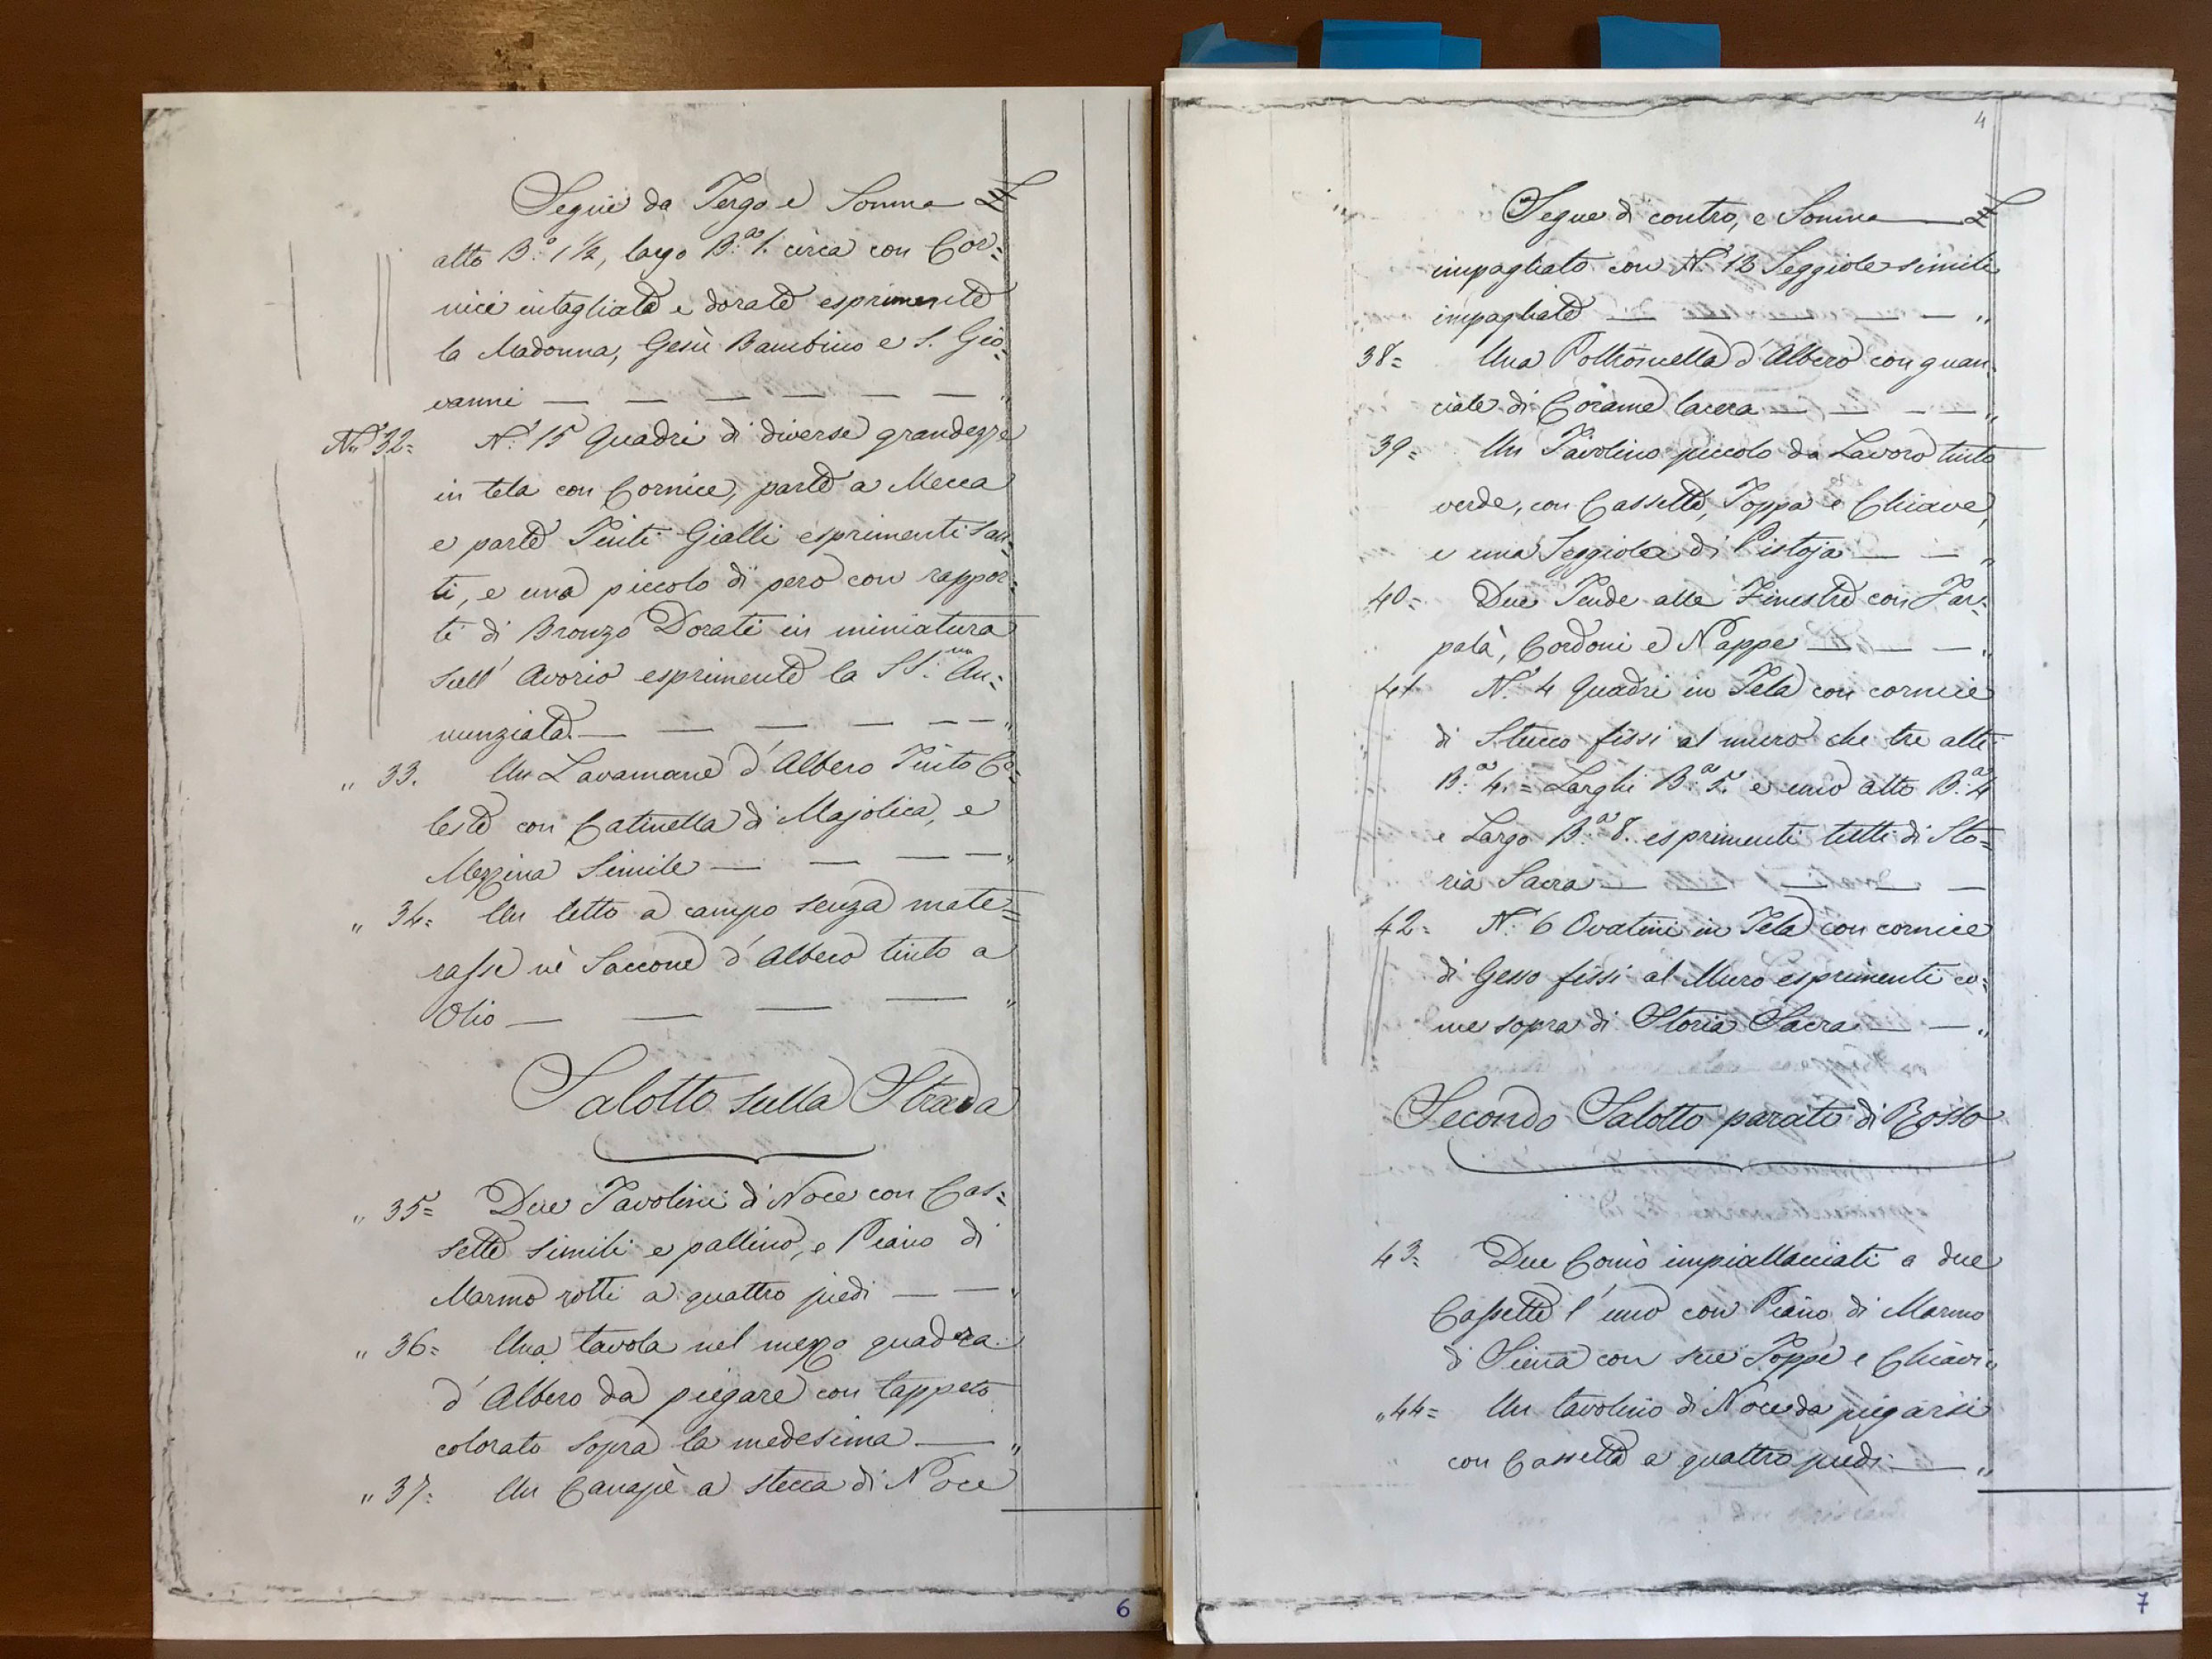 Segue da Tergo e Somma £
alto B.ª 1 ½, largo B.ª 1. circa con Cor=
nice intagliata e dorata esprimente
la Madonna, Gesù Bambino e S. Gio=
vanni — — — — — — "
N.° 32= N.° 15 Quadri di diverse grandezze
in tela con Cornice, parte a Mecca
e parte Tinti Gialli esprimenti San=
ti, e una piccolo di pero con rappor=
ti di Bronzo Dorati in miniatura
sull' Avorio esprimente la SS.ma An=
nunziata — — — — — — "
" 33. Un Lavamane d'Albero Tinto Ce=
leste con Catinella di Majolica, e
Mezzina Simile — — — — "
" 34= Un letto a campo senza mate=
rasse nè Saccone d'Albero tinto a
Olio — — — — "
Salotto sulla Strada
" 35= Due Tavolini di Noce con Cas=
sette simili e pallino, e Piano di
Marmo rotti a quattro piedi — — "
" 36= Una tavola nel mezzo quadra
d'Albero da piegare con tappeto
colorato sopra la medesima — "
" 37= Un Canapè a stecca di Noce
6
4
Segue di contro, e Somma — £
impagliato con N.° 12 Seggiole simili
impagliate — — — — — "
38= Una Poltroncella d'Albero con guan=
ciale di Corame lacera — — — — "
39= Un Tavolino piccolo da Lavoro tinto
verde, con Cassetta, Toppa e Chiave,
e una Seggiola di Pistoja — — "
40= Due Tende alle Finestre con Far=
palà, Cordoni e Nappe — — — "
41. N.° 4 Quadri in Tela con cornice
di Stucco fissi al muro che tre alti
B.ª 4. = Larghi B.ª 5. e uno alto B.ª 4
e Largo B.ª 8. esprimenti tutti di Sto=
ria Sacra — — — — —
42= N.° 6 Ovatini in Tela con cornice
di Gesso fissi al Muro esprimenti co=
me sopra di Storia Sacra — — "
Secondo Salotto parato di Rosso
43= Due Comò impiallacciati a due
Cassette l'uno con Piano di Marmo
di Siena con sue Toppe e Chiavi "
" 44= Un tavolino di Noce da piegarsi
con Cassetta a quattro piedi — "
7